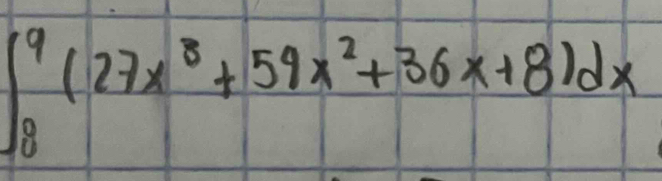 ∫₈⁹ (27x³ + 59x² + 36x + 8)dx